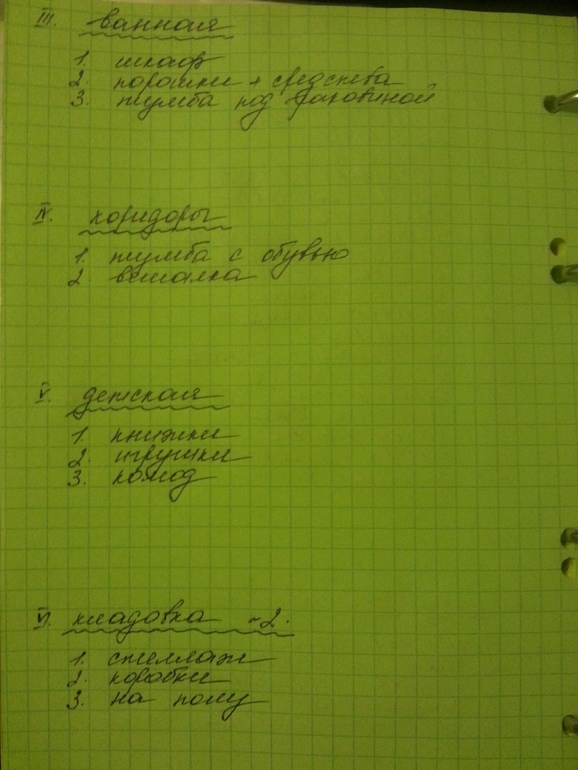 III. ванная
1. шкаф
2. порошки + средства
3. тумба под раковиной
IV. коридоры
1. тумба с обувью
2 вешалка
V. детская
1. книжки
2. игрушки
3. комод
VI. кладовка -2.
1. стеллаж
2. коробки
3. на полу